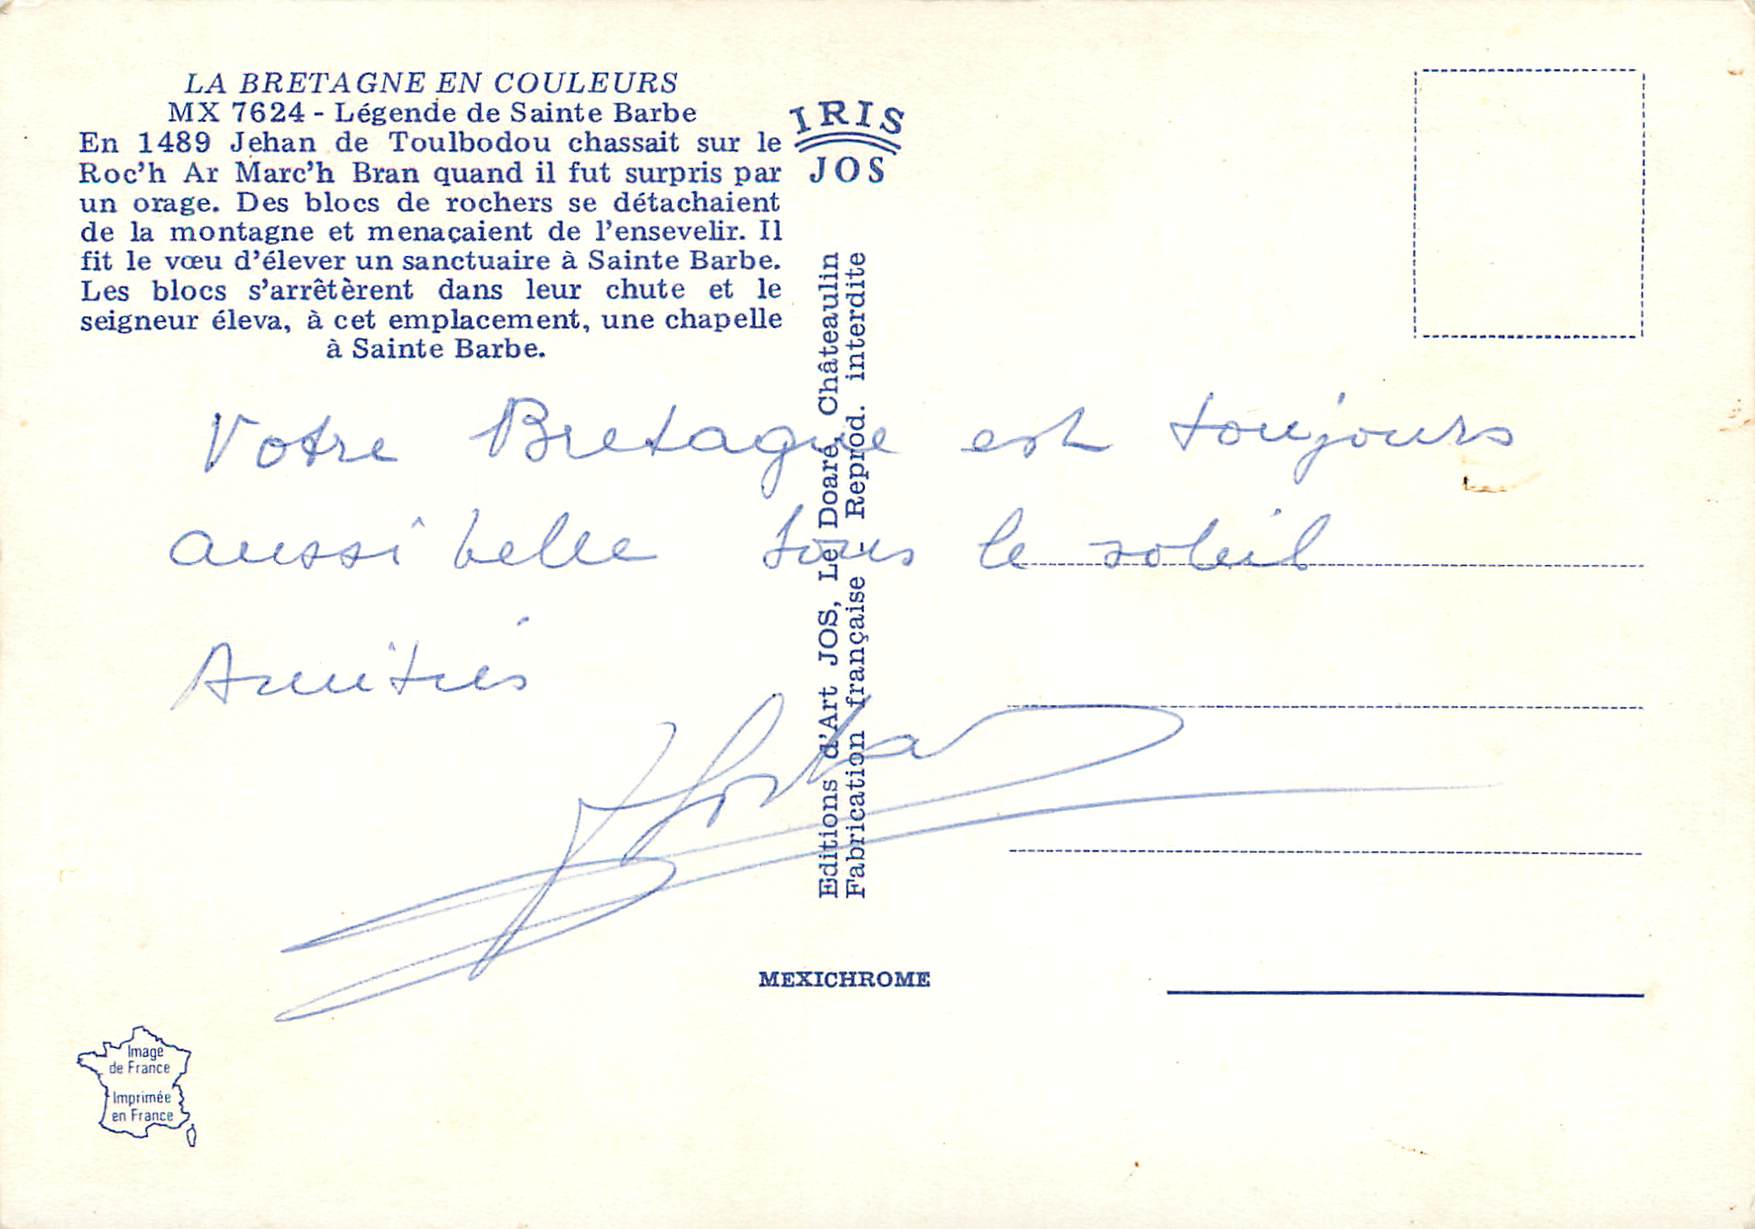 LA BRETAGNE EN COULEURS
MX 7624 - Légende de Sainte Barbe
En 1489 Jehan de Toulbodou chassait sur le
Roc'h Ar Marc'h Bran quand il fut surpris par
un orage. Des blocs de rochers se détachaient
de la montagne et menaçaient de l'ensevelir. Il
fit le vœu d'élever un sanctuaire à Sainte Barbe.
Les blocs s'arrêtèrent dans leur chute et le
seigneur éleva, à cet emplacement, une chapelle
à Sainte Barbe.
IRIS
JOS
Editions d'Art JOS, Le Doaré, Châteaulin
Fabrication française - Reprod. interdite
Votre Bretagne est toujours
aussi belle sous le soleil
Amitiés
MEXICHROME
Image
de France
Imprimée
en France